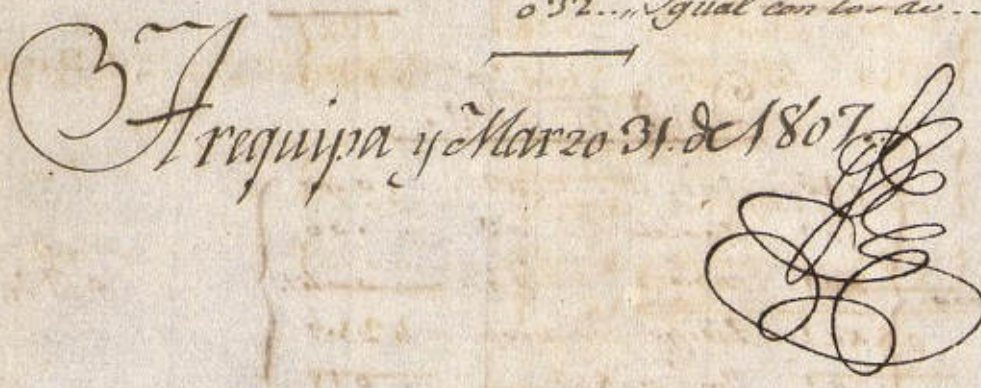 032.... Igual con los de ...
Arequipa y Marzo 31. de 1807,,